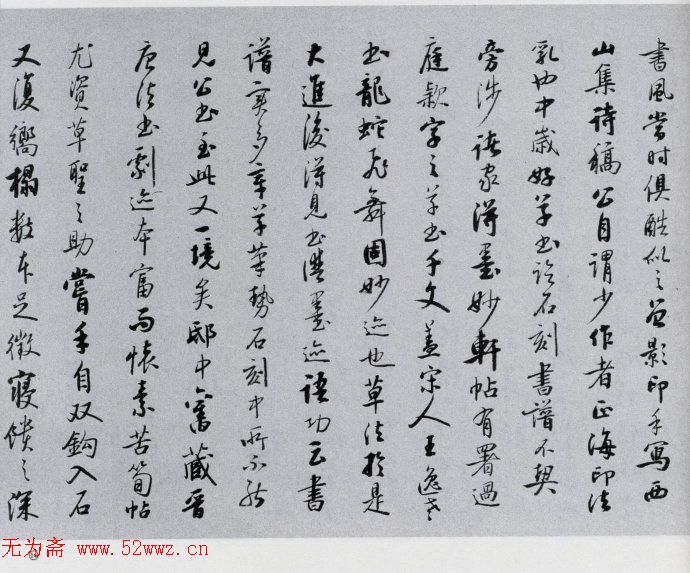 書風當时俱酷似之並影印手寫西
山集诗稿公自謂少作者正海印法
乳也中歲好草书论石刻書譜不契
旁涉诸家得墨妙軒帖有署過
庭款字之草书千文蓋宋人王逸老
书龍蛇飛舞固妙迹也草法於是
大進後得見书譜墨迹語功云書
譜実多章草筆勢石刻中所不能
見公书至此又一境矣邸中舊藏晋
唐法书劇迹本富而懷素苦筍帖
尤資草聖之助嘗手自双鈎入石
又復嚮榻数本足徵寢饋之深
无为斋 www.52wwz.cn